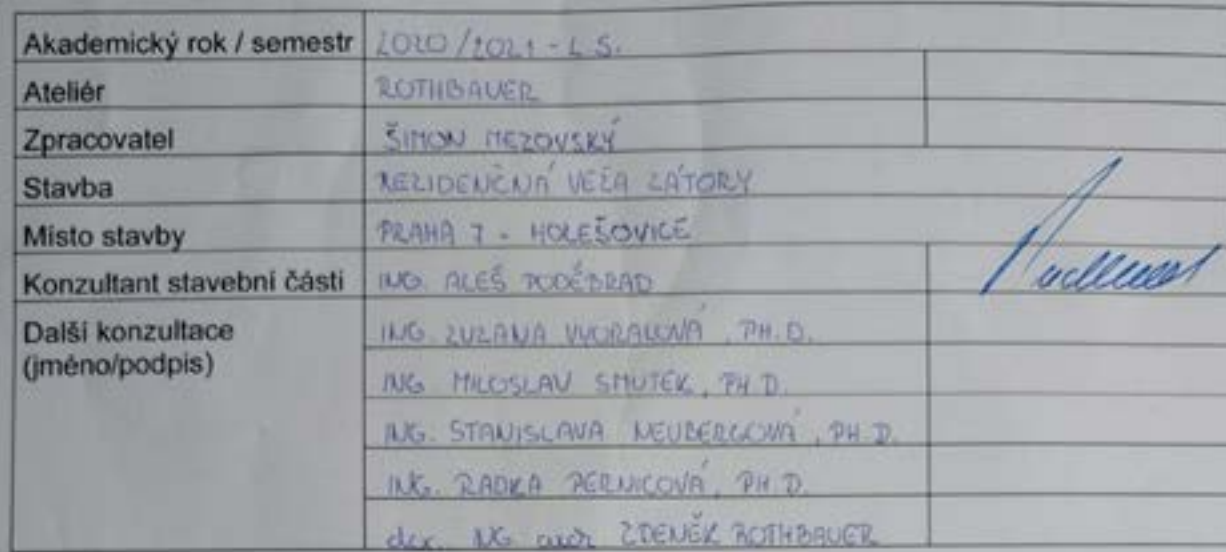 Akademický rok / semestr 2020/2021 - L.S.
Ateliér ROTHBAUER
Zpracovatel ŠIMON MEZOVSKÝ
Stavba REZIDENČNÁ VEŽA ZÁTORY
Místo stavby PRAHA 7 - HOLEŠOVICE
Konzultant stavební části ING. ALEŠ PODĚBRAD
Další konzultace ING. ZUZANA VYORALOVÁ, PH.D.
(jméno/podpis)
ING. MILOSLAV SMUTEK, PH.D.
ING. STANISLAVA NEUBERGOVÁ, PH.D.
ING. RADKA PERNICOVÁ, PH.D.
doc. ING. arch. ZDENĚK ROTHBAUER